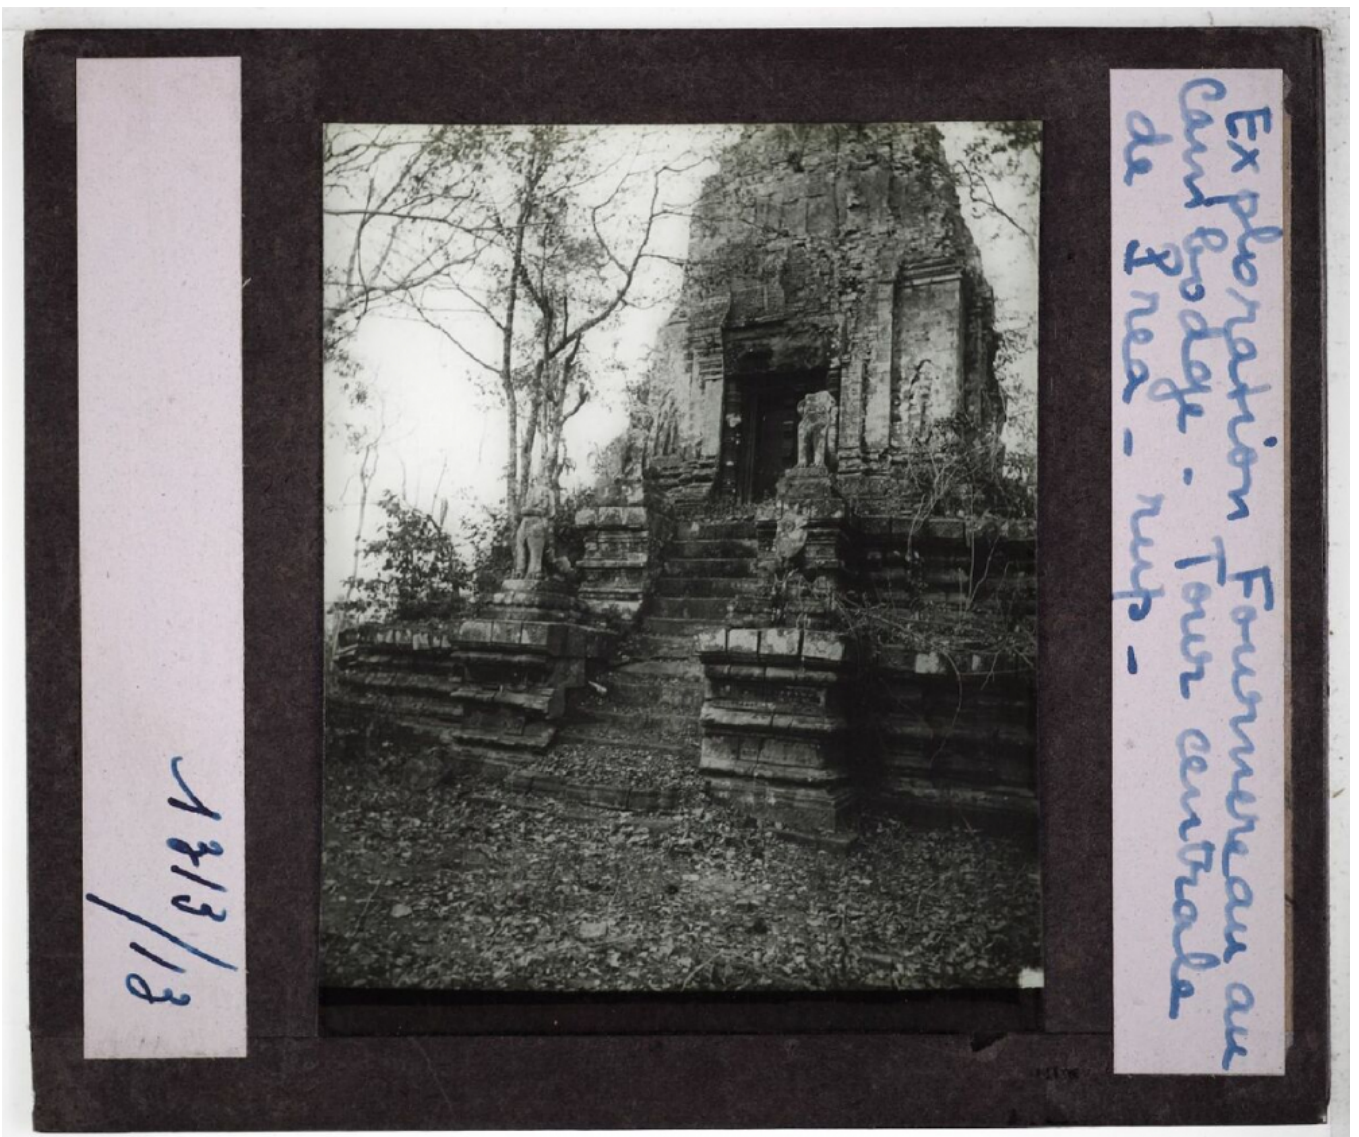 Exploration Fournereau au
Cambodge - Tour centrale
de Prea - rup -
1313/
/13